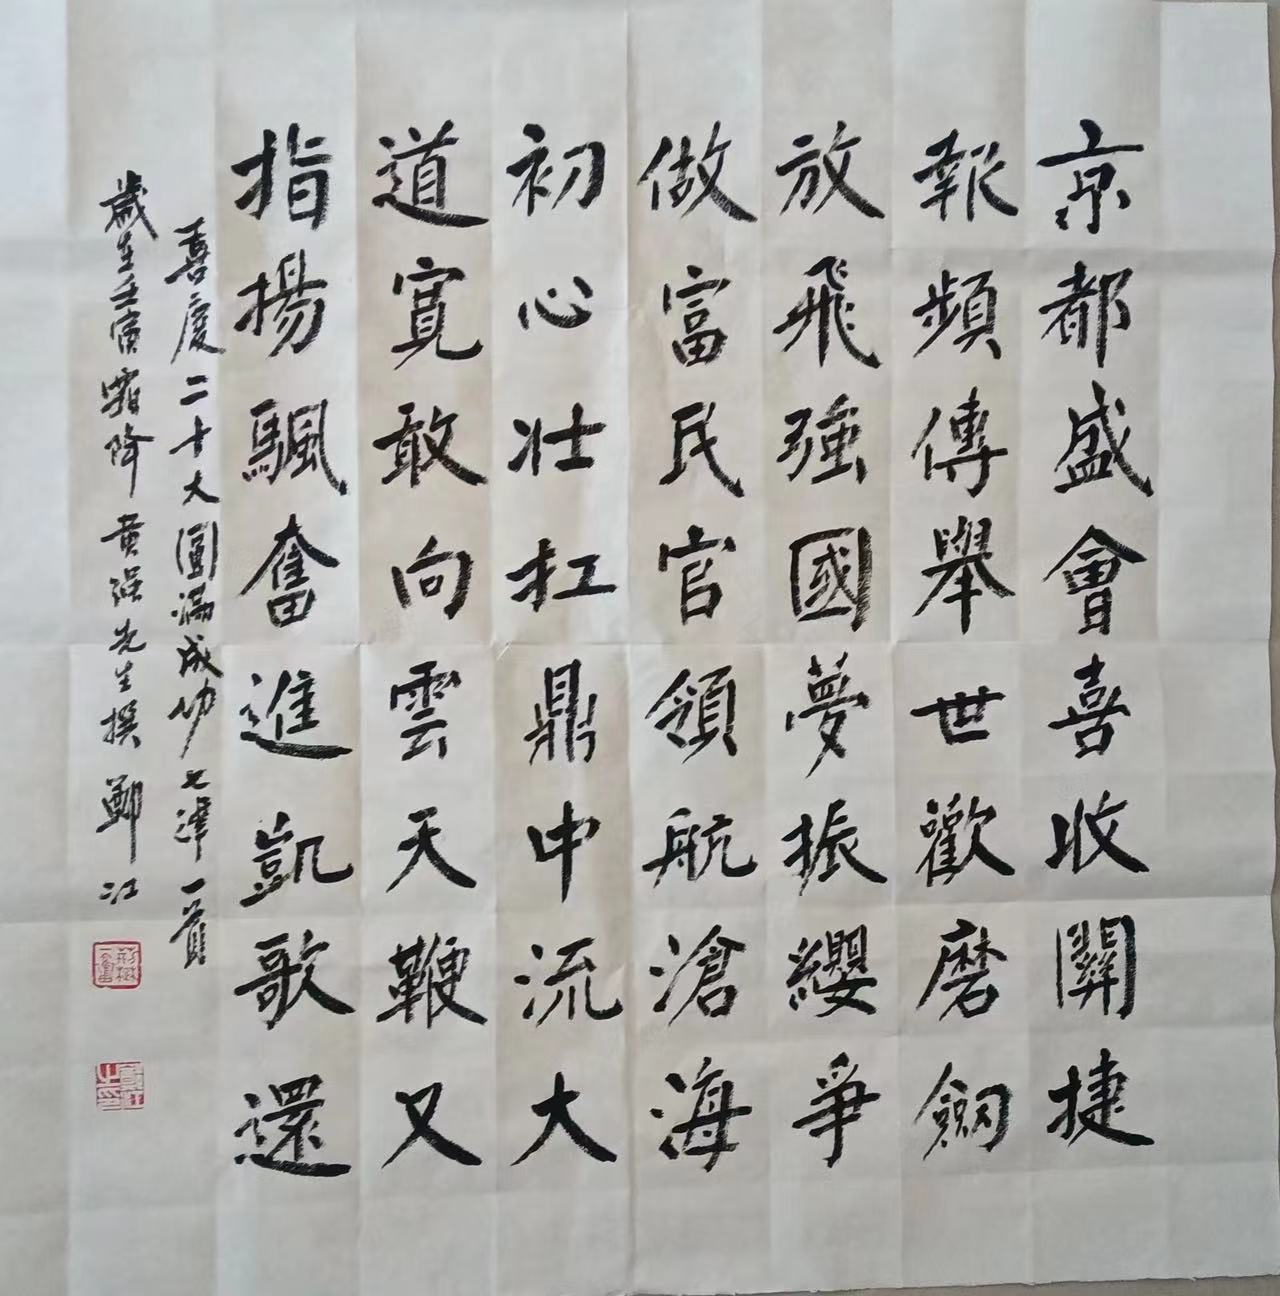 京都盛會喜收關捷
報頻傳舉世歡磨劍
放飛強國夢振纓爭
做富民官領航滄海
初心壯扛鼎中流大
道寬敢向雲天鞭又
指揚颿奮進凱歌還
喜慶二十大圓滿成功七律一首
歲在壬寅霜降黃強先生撰鄭江